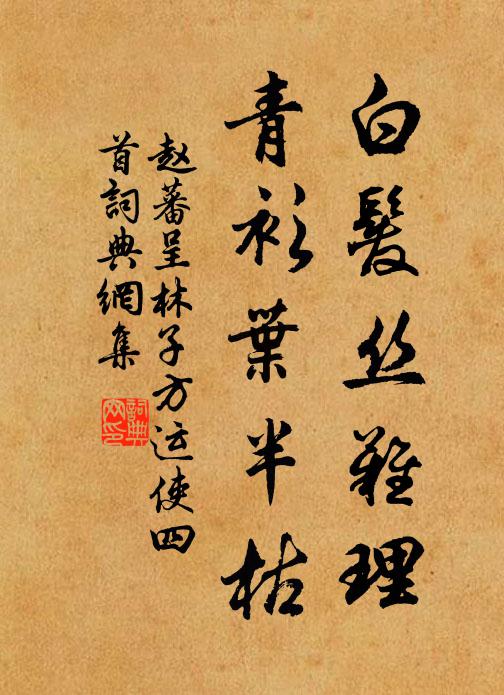 白髮丝難理
青衫葉半枯
赵蕃呈林子方运使四
首詞典網集
詞典
网印